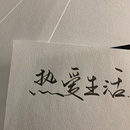 热爱生活